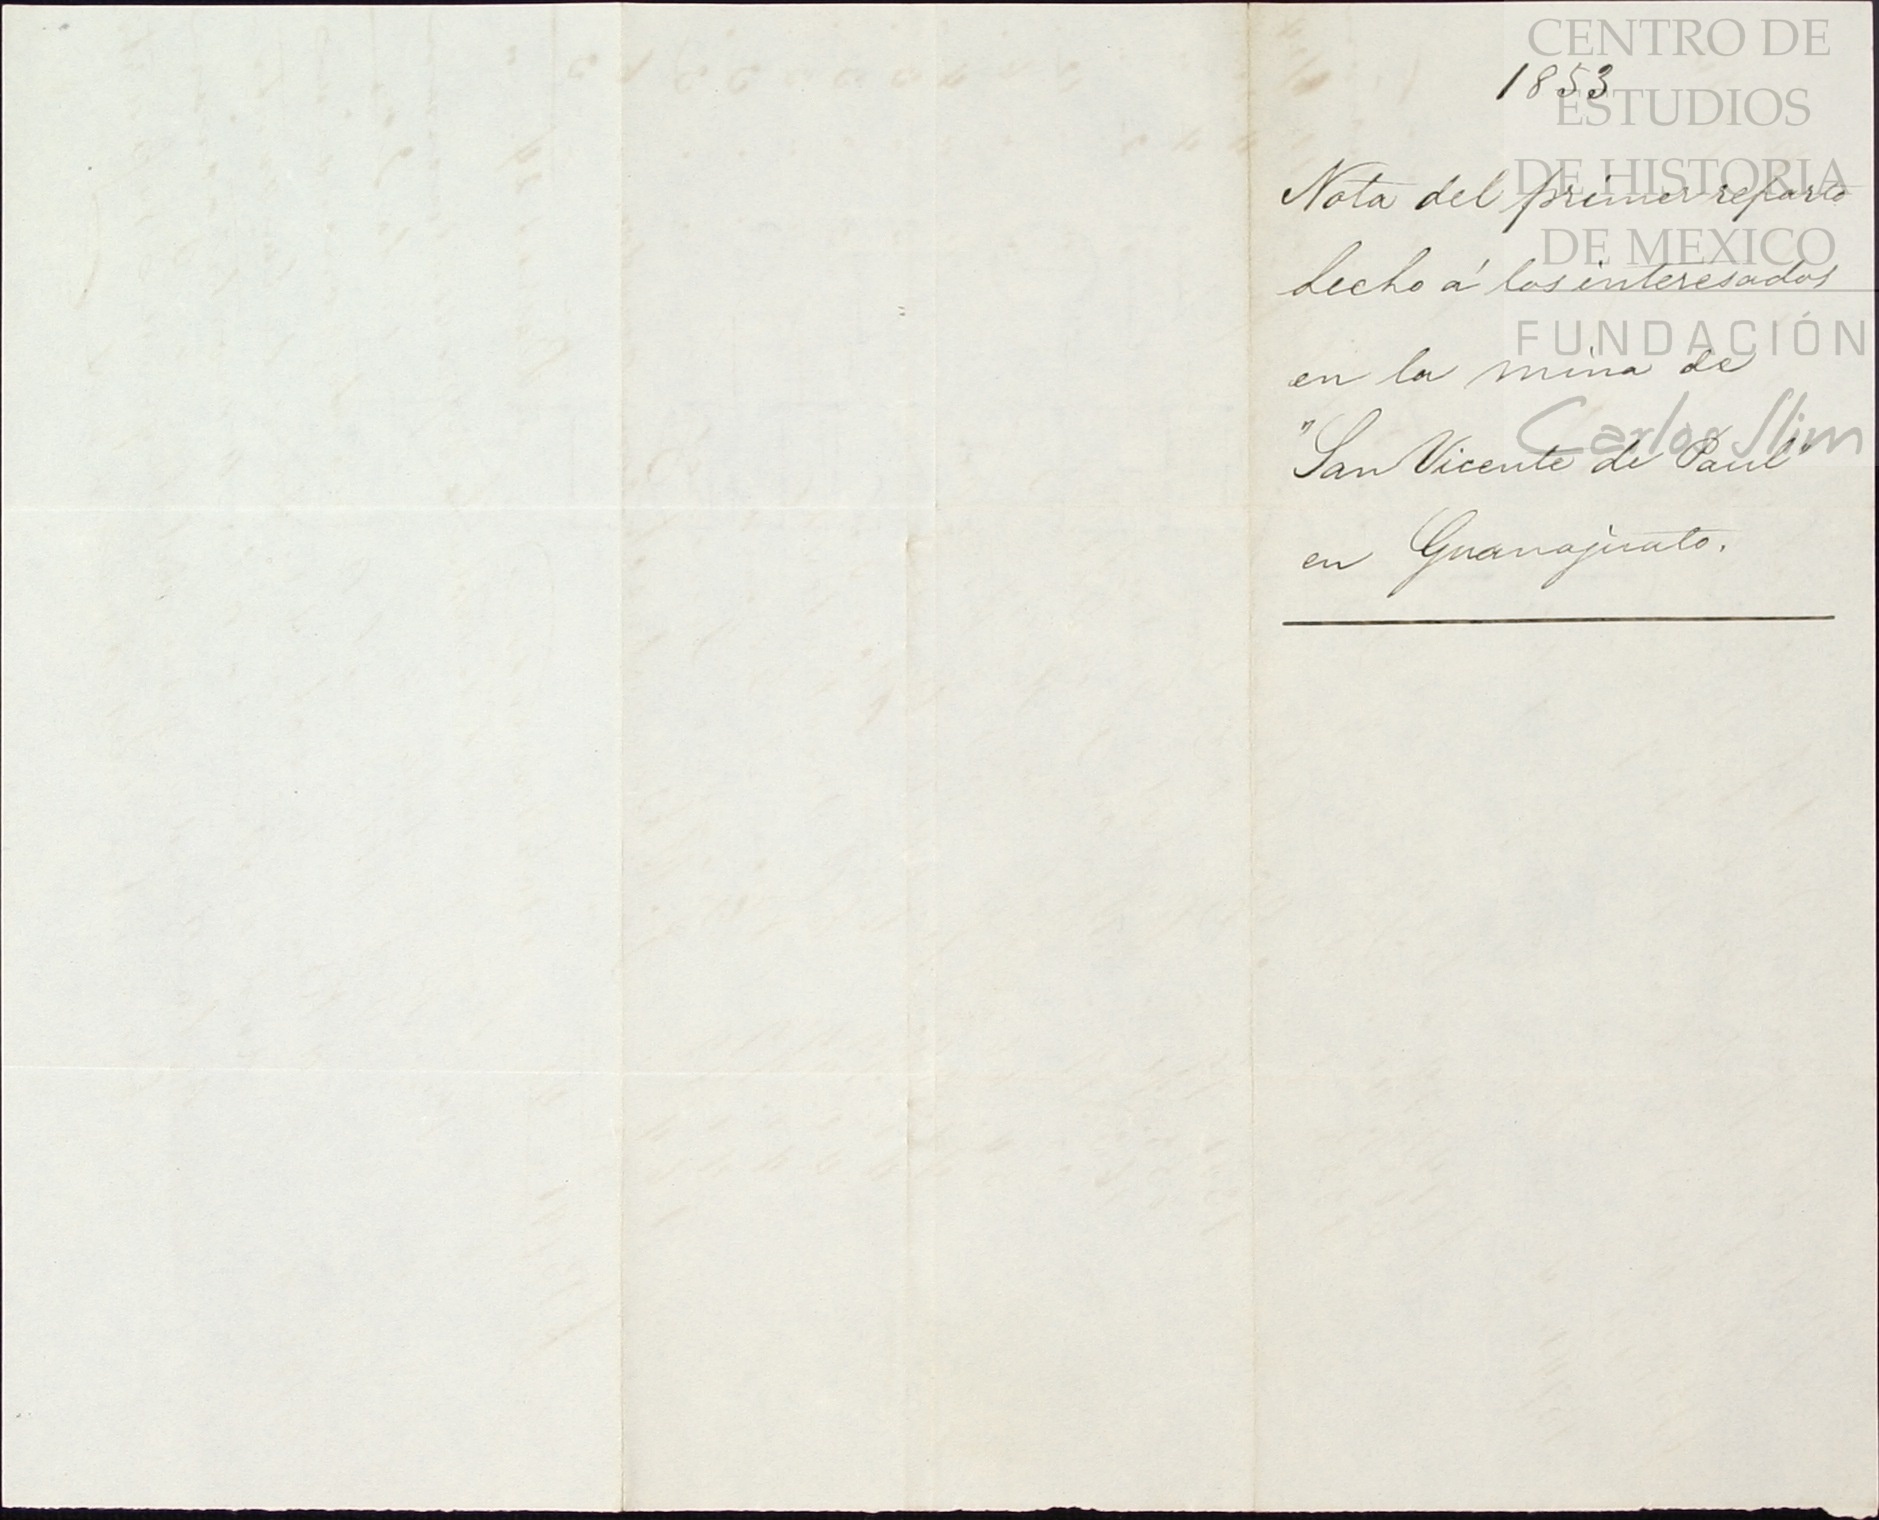 CENTRO DE
ESTUDIOS
DE HISTORIA
DE MEXICO
FUNDACIÓN
Carlos Slim
1853
Nota del primer reparto
hecho á los interesados
en la mina de
"San Vicente de Paul"
en Guanajuato.